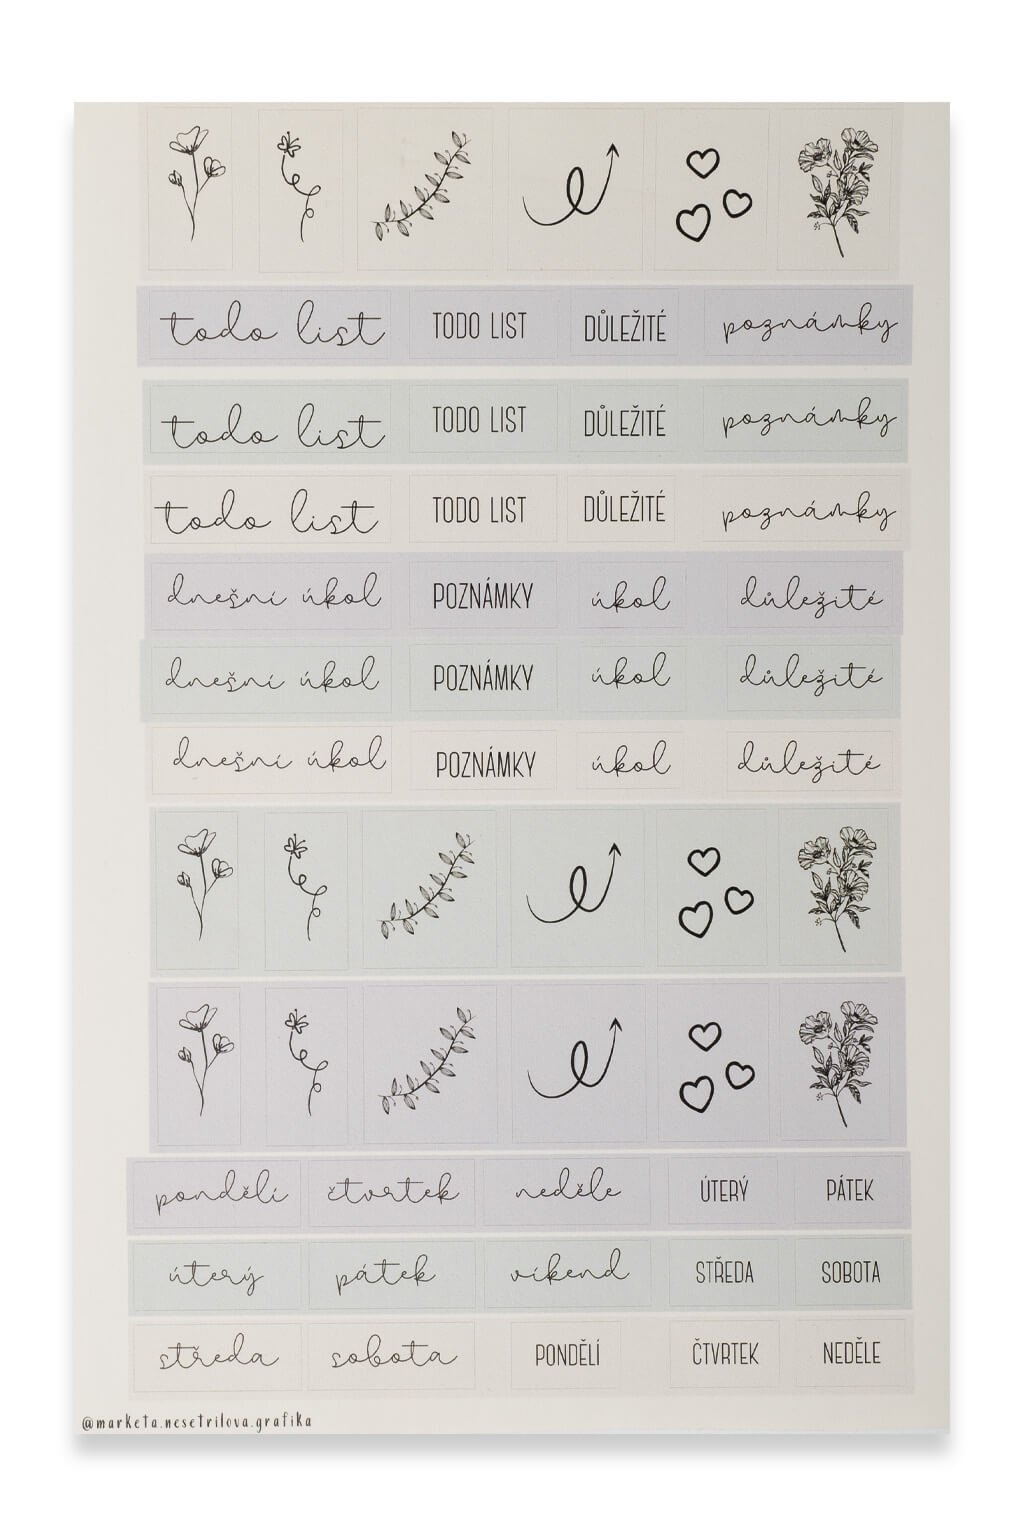 todo list TODO LIST DŮLEŽITÉ poznámky
todo list TODO LIST DŮLEŽITÉ poznámky
todo list TODO LIST DŮLEŽITÉ poznámky
dnešní úkol POZNÁMKY úkol důležité
dnešní úkol POZNÁMKY úkol důležité
dnešní úkol POZNÁMKY úkol důležité
pondělí čtvrtek neděle ÚTERÝ PÁTEK
úterý pátek víkend STŘEDA SOBOTA
středa sobota PONDĚLÍ ČTVRTEK NEDĚLE
@marketa.nesetrilova.grafika